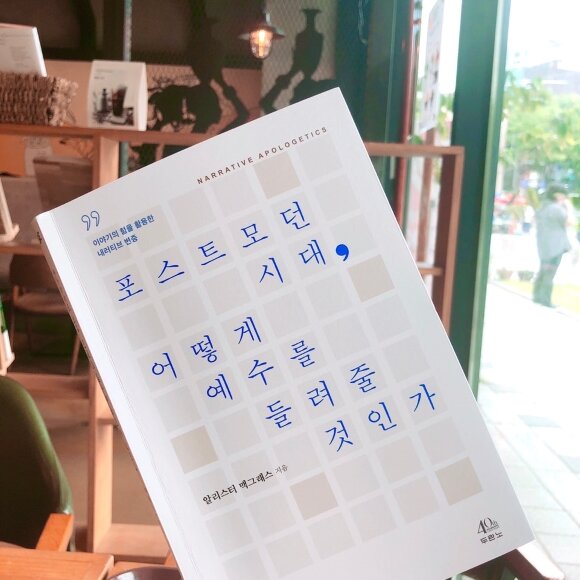 NARRATIVE APOLOGETICS
이야기의 힘을 활용한
내러티브 변증
포스트모던
시대,
어떻게
예수를
들려줄
것인가
알리스터 맥그래스 지음
40th
두란노